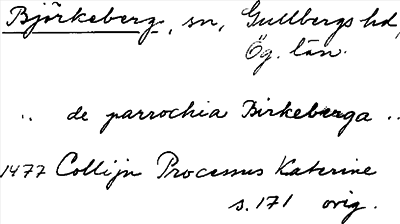 Björkeberg, sn, Gullbergs hd,
Ög. län.
.. de parrochia Birkeberga ..
1477 Collijn Processus Katerine
s. 171 orig.